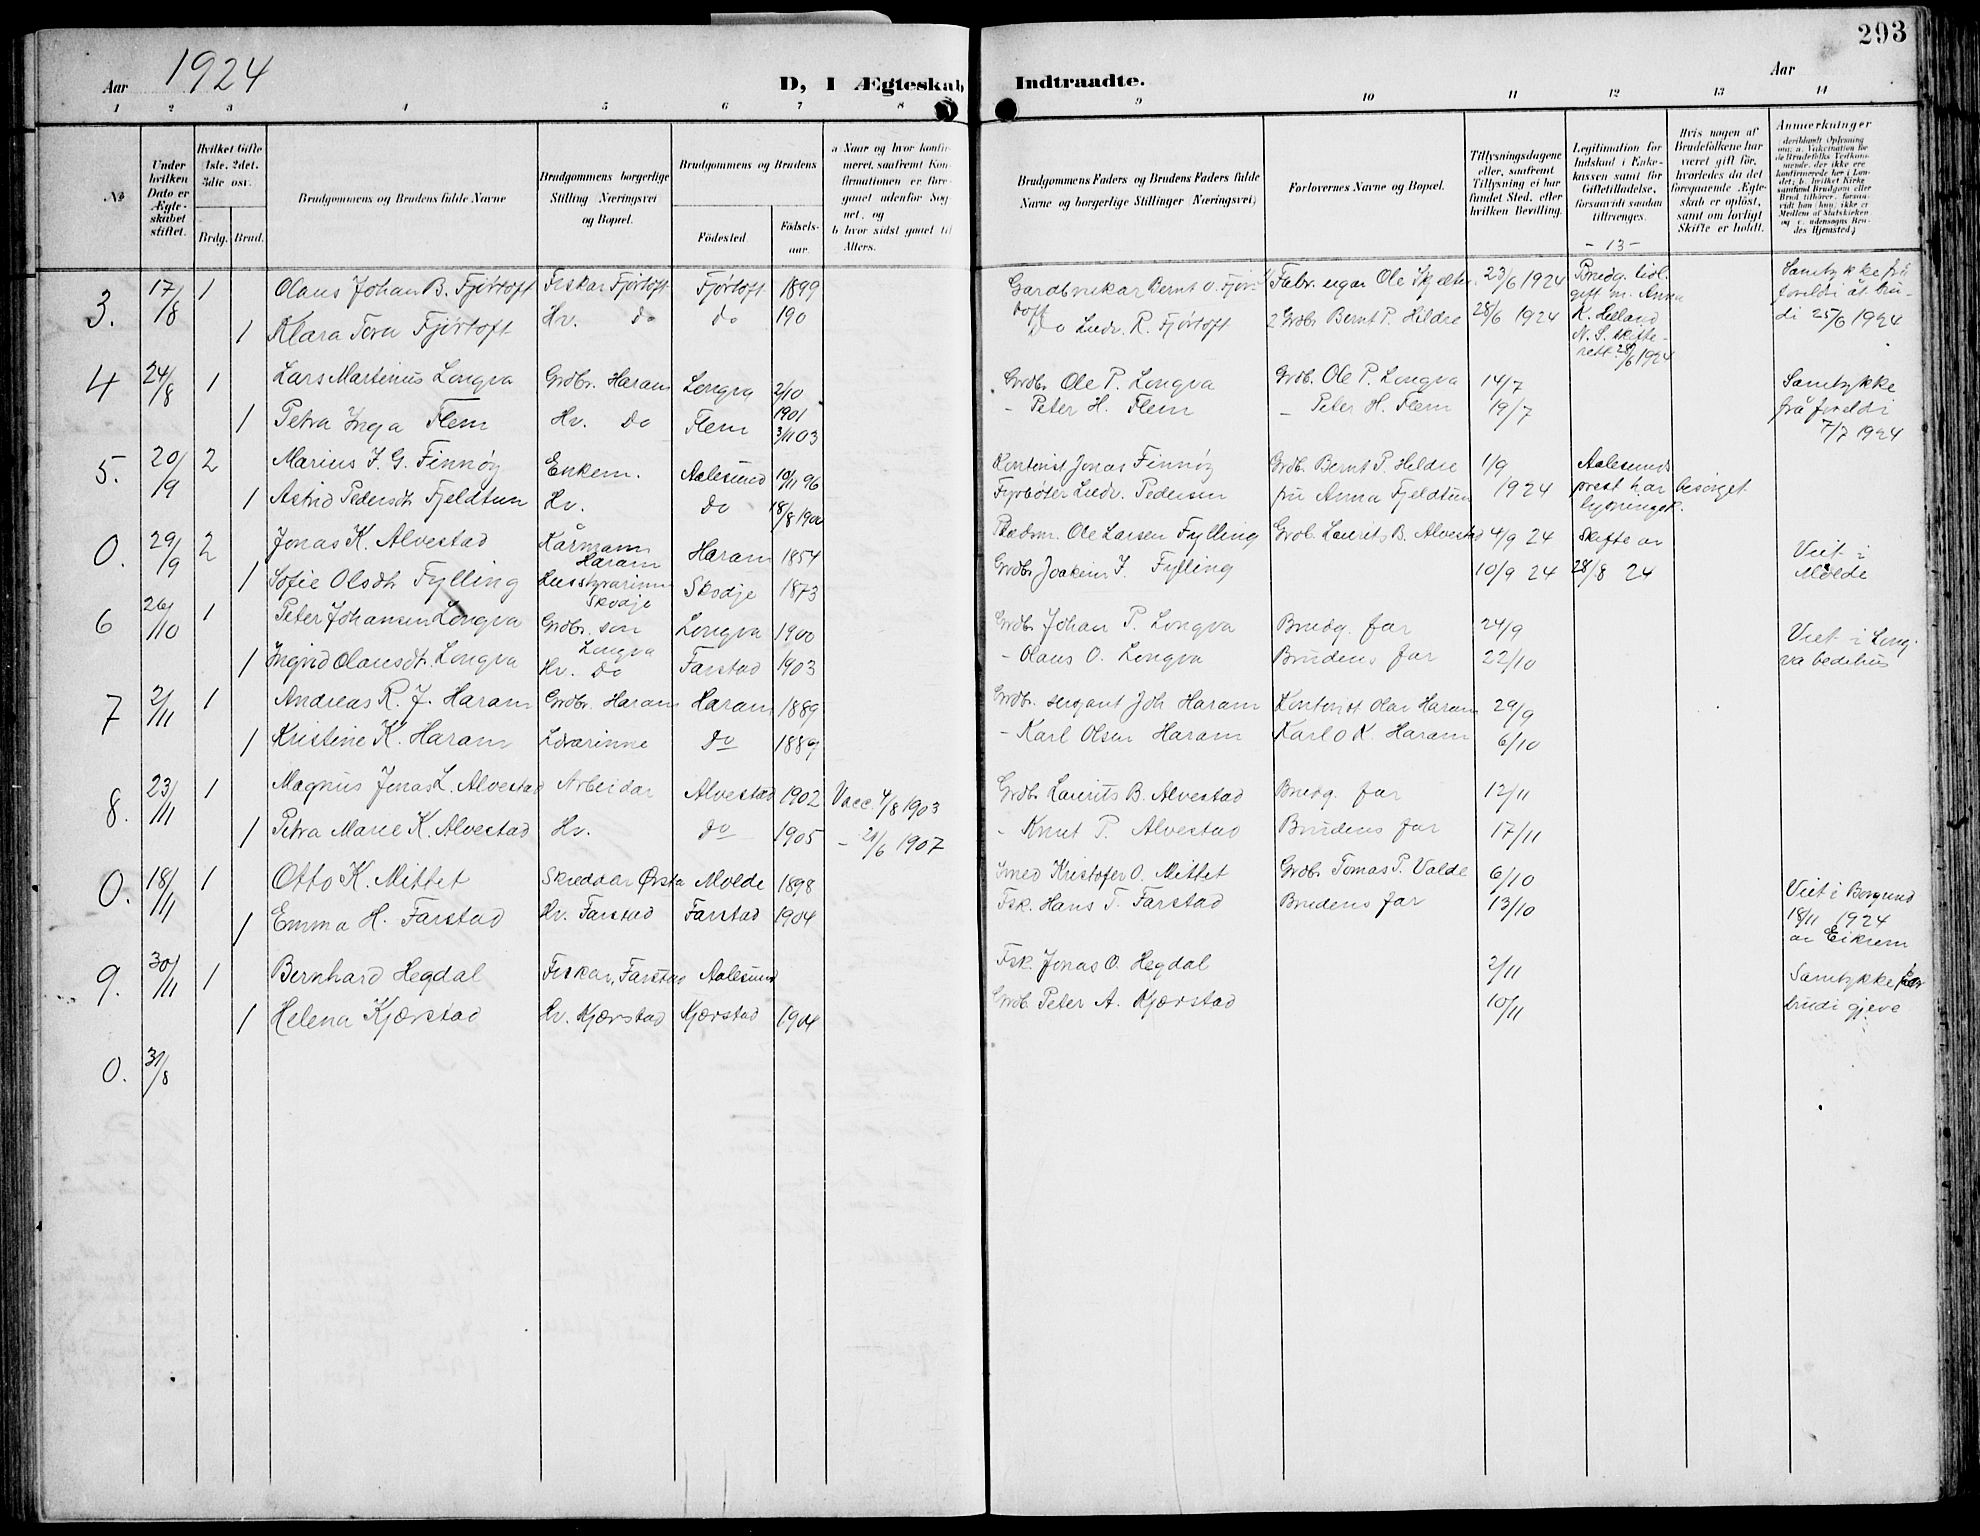 293
Aar 1924
D, I Ægteskab Indtraadte.
Aar
1 2 3 4 5 6 7 8 9 10 11 12 13 14
№
Under hvilken Dato er Ægteskabet stiftet.
Hvilket Gifte 1ste, 2det, 3die osv.
Brdg. Brud.
Brudgommens og Brudens fulde Navne
Brudgommens borgerlige Stilling Næringsvei og Bopæl.
Brudgommens og Brudens
Fødested
Fødsels-aar.
a Naar og hvor konfirmeret, saafremt Konfirmationen er foregaaet udenfor Sognet, og
b hvor sidst gaaet til Alters.
Brudgommens Faders og Brudens Faders fulde Navne og borgerlige Stillinger Næringsvei)
Forlovernes Navne og Bopæl.
Tillysningsdagene eller, saafremt Tillysning ei har fundet Sted, efter hvilken Bevilling.
Legitimation for Indskud i Enkekassen samt for Giftetilladelse, forsaavidt saadan tiltrænges.
Hvis nogen af Brudefolkene har været gift før, hvorledes da det foregaaende Ægteskab er opløst, samt om lovligt Skifte er holdt.
Anmærkninger
- 13 -
3. 17/8 1 Olaus Johan B. Fjørtoft Fiskar Fjørtoft Fjørtoft 1899 Gardbrukar Bernt O. Fjørtoft Fabr. eigar Ole 23/6 1924 Brudg. tidl. gift m. Anna K. Helland N. S. skifterett 28/6 1924 Samtykke frå foreldi åt brudi 25/6 1924
1 Klara Tora Fjørtoft Hv. do do 190 do Ludv. R. Fjørtoft 2 Grdbr Bernt P. Hildre 28/6 1924
4 24/8 1 Lars Martinus Longva Grdbr. Haram Longva 2/10 1901 Grdbr. Ole P. Longva Grdb. Ole P. Longva 14/7 Samtykke frå foreldi 7/7 1924
1 Petra Inga Flem Hv. do Flem 3/11 03 - Peter H. Flem - Peter H. Flem 19/7
5. 20/9 2 Marius J. G. Finnøy Enkem. Aalesund 10/11 96 Kontorist Jonas Finnøy Grdb. Bernt P. Hildre 1/9 Aalesunds prest har besörget lysninget.
1 Astrid Pedersdt. Fjeldtun Hv. do 18/8 1900 Fyrbøter Ludv. Pedersen fru Anna Fjeldtun 1924
0. 29/9 2 Jonas K. Alvestad Kårmann Haram Haram 1854 Ole Larsen Fylling Grdb. Laurits B. Alvestad 4/9 24 Skifte av 28/8 24 Viet i Molde
1 Sofie Olsdt. Fylling Husstyrarinne Skodje Skodje 1873 Grdbr Joakim J. Fylling 10/9 24
6 26/10 1 Peter Johansen Longva Grdbr. son Longva Longva 1900 Grdb. Johan P. Longva Brudg. far 24/9 Viet i Longva bedehus
1 Ingrid Olausdt. Longva Hv. do Farstad 1903 - Olaus O. Longva Brudens far 22/10
7 2/11 1 Andreas R. J. Haram Grdbr. Haram Haram 1889 Grdbr. sersjant Joh Haram Kontorist Olav Haram 29/9
1 Kristine K. Haram Lærarinne do 1889 - Karl Olsen Haram Karl O K. Haram 6/10
8. 23/11 1 Magnus Jonas L. Alvestad Arbeidar Alvestad 1902 Vacc. 4/8 1903 Grdb. Laurits B. Alvestad Brudg. far 12/11
1 Petra Marie K. Alvestad Hv. do 1905 - 21/6 1907 - Knut P. Alvestad Brudens far 17/11
0. 18/11 1 Otto K. Mittet Skreddar Ørsta Molde 1898 Smed Kristofer O. Mittet Grdb. Tomas P. Valde 6/10 Viet i Borgund 18/11 1924 av Eikrem
1 Emma H. Farstad Hv. Farstad Farstad 1904 Fsk. Hans T. Farstad Brudens far 13/10
9. 30/11 1 Bernhard Hegdal Fiskar, Farstad Aalesund Fsk. Jonas O. Hegdal 2/11 Samtykke for brudi gjeve
1 Helena Kjærstad Hv. Kjærstad Kjærstad 1904 Grdb. Peter A. Kjærstad 10/11
0. 31/8